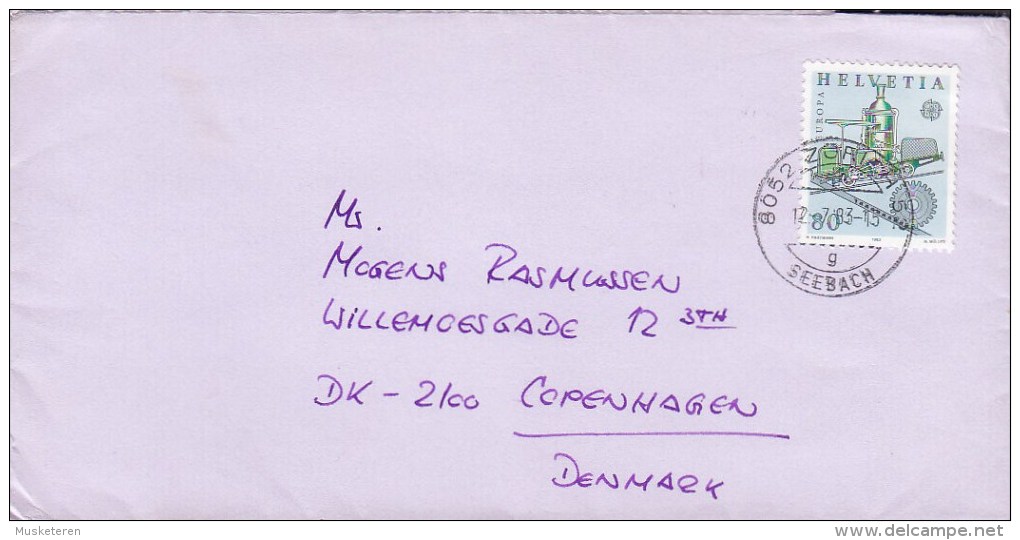 HELVETIA
EUROPA
80
8052 ZÜRICH 52
12.-7.83-15
g
SEEBACH
Mr.
MOGENS RASMUSSEN
WILLEMOESGADE 12 3TH
DK-2100 COPENHAGEN
DENMARK
Musketeren
www.delcampe.net